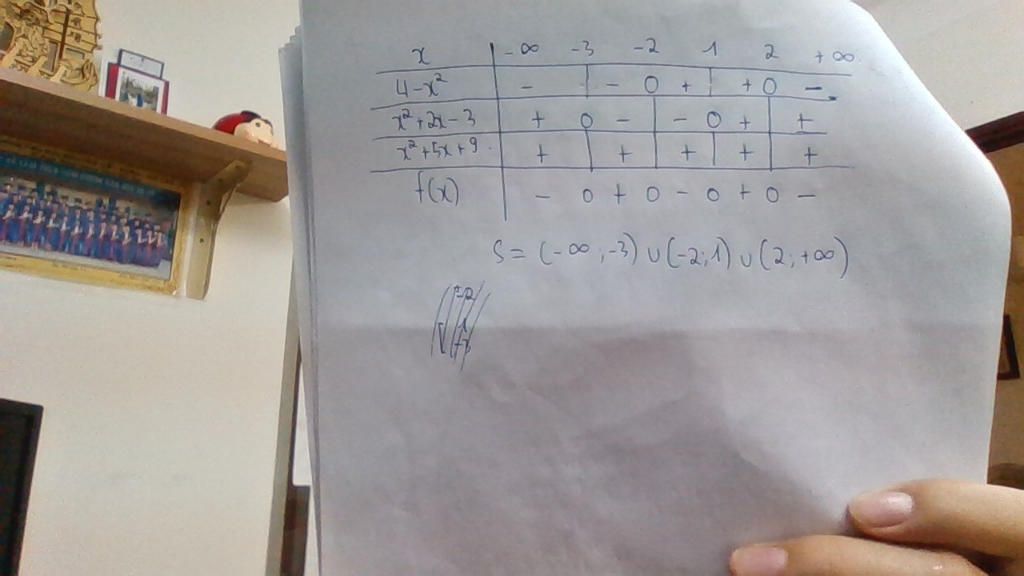 x -∞ -3 -2 1 2 +∞
4-x² - - 0 + + 0 -
x²+2x-3 + 0 - - 0 + +
x²+5x+9 + + + + +
f(x) - 0 + 0 - 0 + 0 -
S = (-∞;-3) ∪ (-2;1) ∪ (2;+∞)